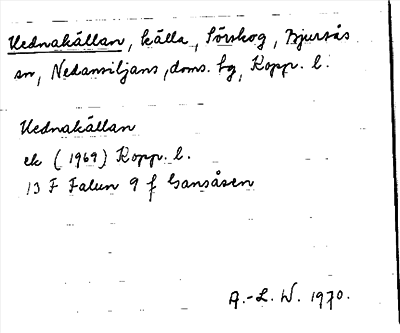 Kednakällan, källa, Sörskog, Bjursås
sn, Nedansiljans, doms. hg, Kopp. l.
Kednakällan
ek (1969) Kopp. l.
13 F Falun 9 f Gansåsen
A.-L. W. 1970.